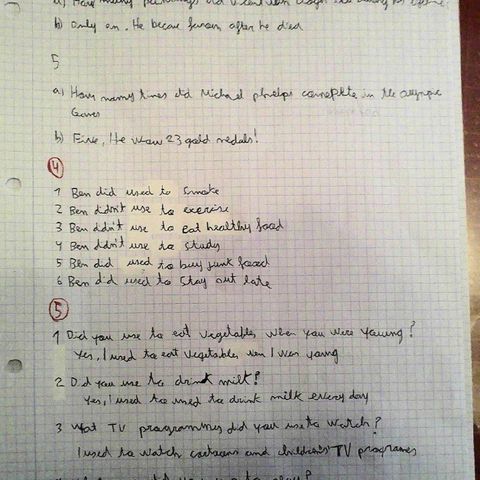 a) How many paintings did
b) Only on. He became famous after he died
5
a) How many times did Michael phelps complete in the Olympic
Games
b) Five, He won 23 gold medals!
4
1 Ben did used to smoke
2 Ben didn't use to exercise
3 Ben didn't use to eat healthy food
4 Ben didn't use to study
5 Ben did used to buy junk food
6 Ben did used to stay out late
5
1 Did you use to eat vegetables when you were youung?
Yes, I used to eat vegetables, wen I was young
2 Did you use to drink milk?
Yes, I used to used to drink milk every day
3 What TV programmes did you use to watch?
I used to watch cartoons and children's TV programes